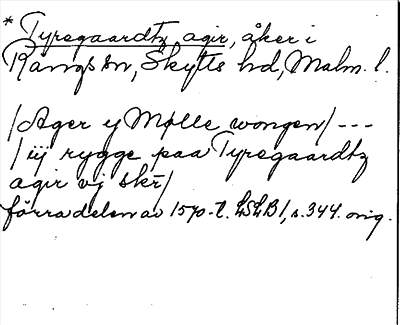 * Tyresgaardtz agir, åker i
Rangs sn, Skytts hd, Malm. l.
/Ager y Mølle wongen/ ---
/iij rygge paa Tyresgaardtz
agir vj skr/
förra delen av 1570-t. LSLB1, s. 344. orig.